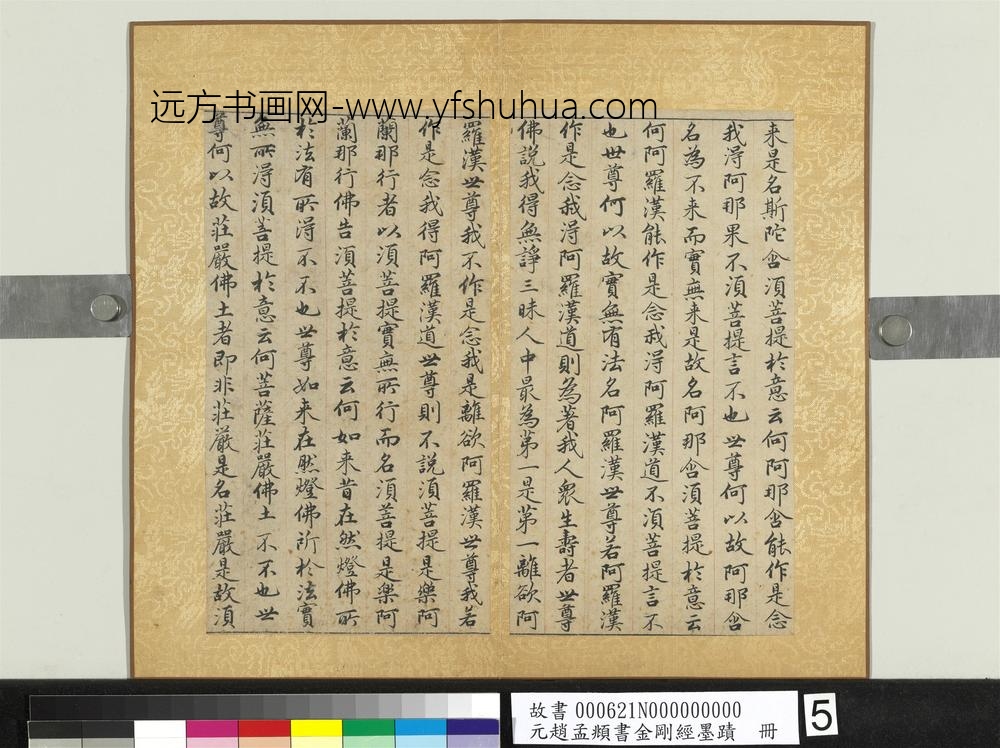 远方书画网-www.yfshuhua.com
来是名斯陀含須菩提於意云何阿那含能作是念
我得阿那果不須菩提言不也世尊何以故阿那含
名為不来而實無来是故名阿那含須菩提於意云
何阿羅漢能作是念我得阿羅漢道不須菩提言不
也世尊何以故實無有法名阿羅漢世尊若阿羅漢
作是念我得阿羅漢道則為著我人衆生壽者世尊
佛說我得無諍三昧人中最為第一是第一離欲阿
羅漢世尊我不作是念我是離欲阿羅漢世尊我若
作是念我得阿羅漢道世尊則不說須菩提是樂阿
蘭那行者以須菩提實無所行而名須菩提是樂阿
蘭那行佛告須菩提於意云何如来昔在然燈佛所
於法有所得不不也世尊如来在然燈佛所於法實
無所得須菩提於意云何菩薩莊嚴佛土不不也世
尊何以故莊嚴佛土者即非莊嚴是名莊嚴是故須
故書 000621N000000000
元趙孟頫書金剛經墨蹟 冊
5